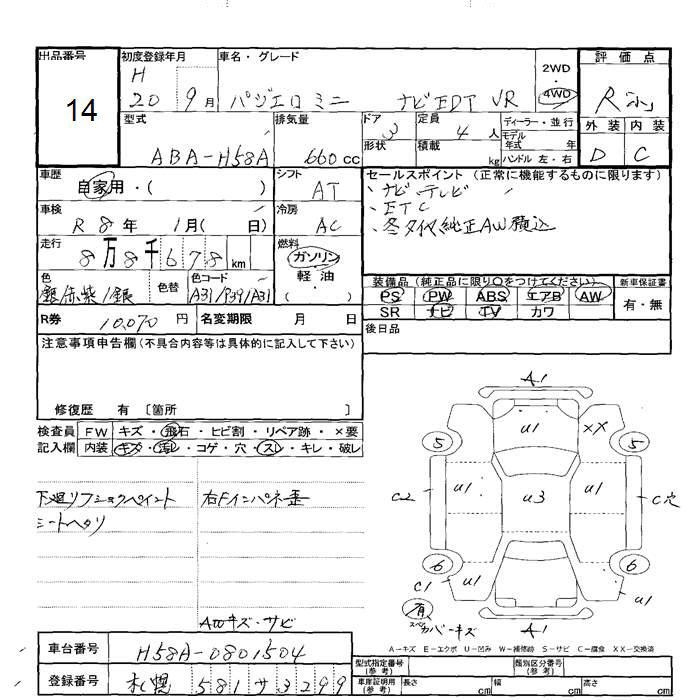 出品番号
14
初度登録年月
H 20 9月
車名・グレード
パジェロミニ ナビEDT VR
2WD・4WD
評価点
R
外装 内装
D C
型式
ABA-H58A
排気量
660cc
ドア 3
形状
定員 4人
積載 kg
ディーラー・並行
モデル年式 年
ハンドル 左・右
車歴
自家用・( )
シフト
AT
車検
R8年 1月( 日)
冷房
AC
走行
8万8千678km
燃料
ガソリン
軽油
・( )
色
銀/赤紫/銀
色替
色コード
A31/P39/A31
セールスポイント (正常に機能するものに限ります)
・ナビ テレビ
・ETC
・冬タイヤ純正AW積込
装備品 (純正品に限り○をつけてください)
PS PW ABS エアB AW
SR ナビ TV カワ
新車保証書
有・無
R券 10,070円
名変期限 月 日
後日品
注意事項申告欄(不具合内容等は具体的に記入して下さい)
修復歴 有 〔箇所 〕
検査員記入欄
FW キズ・飛石・ヒビ割・リペア跡・×要
内装 キズ・汚レ・コゲ・穴・スレ・キレ・破レ
下廻リフショクペイント
シートヘタリ
右Fインパネ歪
AWキズ・サビ
A1
U1
XX
5
5
C2
U1
U3
U1
C穴
6
6
C1
U1
U1
U1
有
スペアカバーキズ
A1
A－キズ E－エクボ U－凹み W－補修跡 S－サビ C－腐食 XX－交換済
車台番号
H58A-0801504
登録番号
札幌 581 サ 3299
型式指定番号(参考)
類別区分番号(参考)
車庫証明(参考) 長さ cm 幅 cm 高さ cm